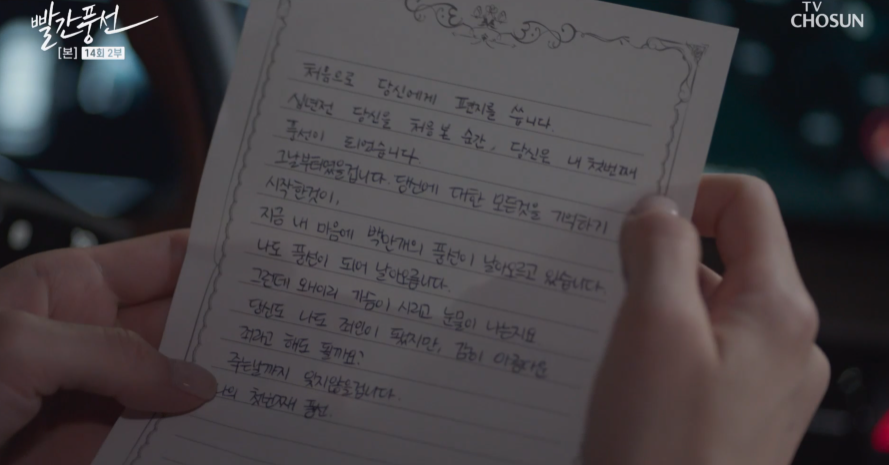 빨간풍선
[본] 14회 2부
TV
CHOSUN
처음으로 당신에게 편지를 씁니다.
십년전 당신을 처음 본 순간, 당신은 내 첫번째
풍선이 되었습니다.
그날부터였을겁니다. 당신에 대한 모든것을 기억하기
시작한것이.
지금 내 마음에 백만개의 풍선이 날아오르고 있습니다.
나도 풍선이 되어 날아오릅니다.
그런데 왜이리 가슴이 시리고 눈물이 나는지요
당신도 나도 죄인이 됐지만, 감히 아름다운
죄라고 해도 될까요?
죽는날까지 잊지않을겁니다.
나의 첫번째 풍선